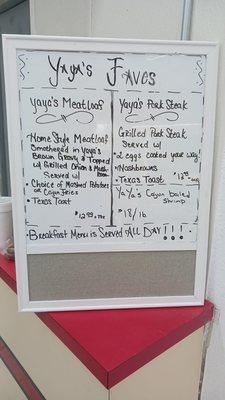 Yaya's Faves
Yaya's Meatloaf
Home Style Meatloaf
Smothered in Yaya's
Brown Gravy & Topped
w/ Grilled Onion & Mush-
room
Served w/
• Choice of Mashed Potatoes
or Cajun Fries
• Texas Toast
$12.99
Yaya's Pork Steak
Grilled Pork Steak
Served w/
• 2 eggs cooked your way!
• Hashbrowns
• Texas Toast
YaYa's Cajun boiled
shrimp
$18/lb
Breakfast Menu is Served All Day!!!